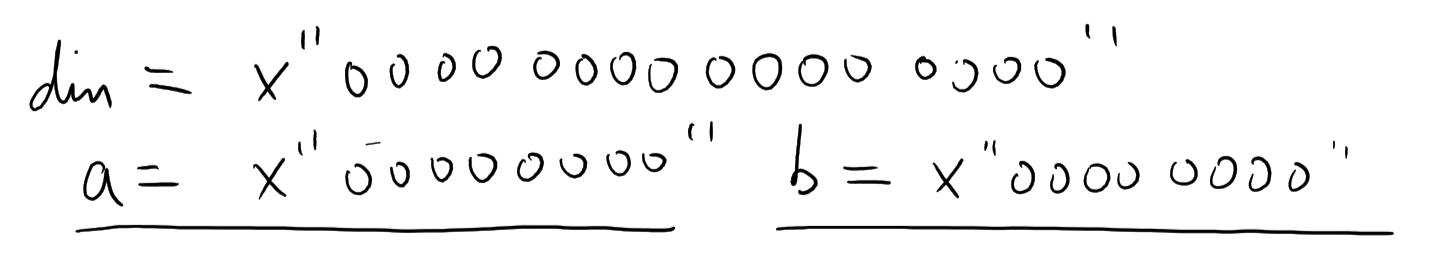 din = x"0000 0000 0000 0000"
a = x"00000000" b = x"0000 0000"